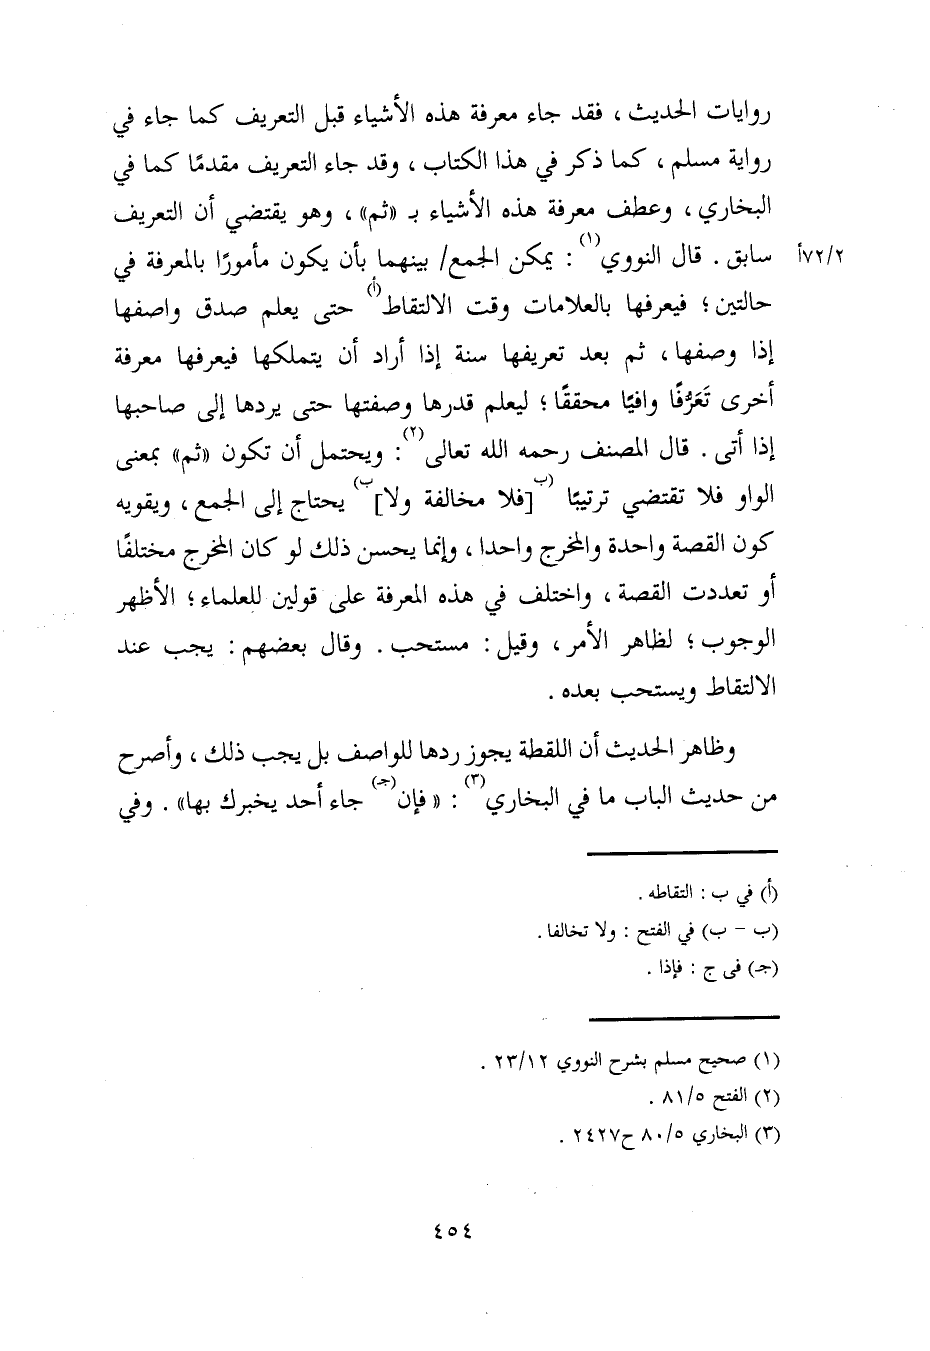 روايات الحديث ، فقد جاء معرفة هذه الأشياء قبل التعريف كما جاء في
رواية مسلم ، كما ذكر في هذا الكتاب ، وقد جاء التعريف مقدمًا كما في
البخاري ، وعطف معرفة هذه الأشياء بـ «ثم» ، وهو يقتضي أن التعريف
٧٢/٢أ سابق . قال النووي(١) : يمكن الجمع/ بينهما بأن يكون مأمورًا بالمعرفة في
حالتين ؛ فيعرفها بالعلامات وقت الالتقاط(أ) حتى يعلم صدق واصفها
إذا وصفها ، ثم بعد تعريفها سنة إذا أراد أن يتملكها فيعرفها معرفة
أخرى تَعَرُّفًا وافيًا محققًا ؛ ليعلم قدرها وصفتها حتى يردها إلى صاحبها
إذا أتى . قال المصنف رحمه الله تعالى(٢) : ويحتمل أن تكون «ثم» بمعنى
الواو فلا تقتضي ترتيبًا (ب)[فلا مخالفة ولا](ب) يحتاج إلى الجمع ، ويقويه
كون القصة واحدة والمخرج واحدا ، وإنما يحسن ذلك لو كان المخرج مختلفًا
أو تعددت القصة ، واختلف في هذه المعرفة على قولين للعلماء ؛ الأظهر
الوجوب ؛ لظاهر الأمر ، وقيل : مستحب . وقال بعضهم : يجب عند
الالتقاط ويستحب بعده .
وظاهر الحديث أن اللقطة يجوز ردها للواصف بل يجب ذلك ، وأصرح
من حديث الباب ما في البخاري(٣) : « فإن(جـ) جاء أحد يخبرك بها» . وفي
(أ) في ب : التقاطه .
(ب - ب) في الفتح : ولا تخالفا .
(جـ) فى ج : فإذا .
(١) صحيح مسلم بشرح النووي ٢٣/١٢ .
(٢) الفتح ٨١/٥ .
(٣) البخاري ٨٠/٥ ح٢٤٢٧ .
٤٥٤